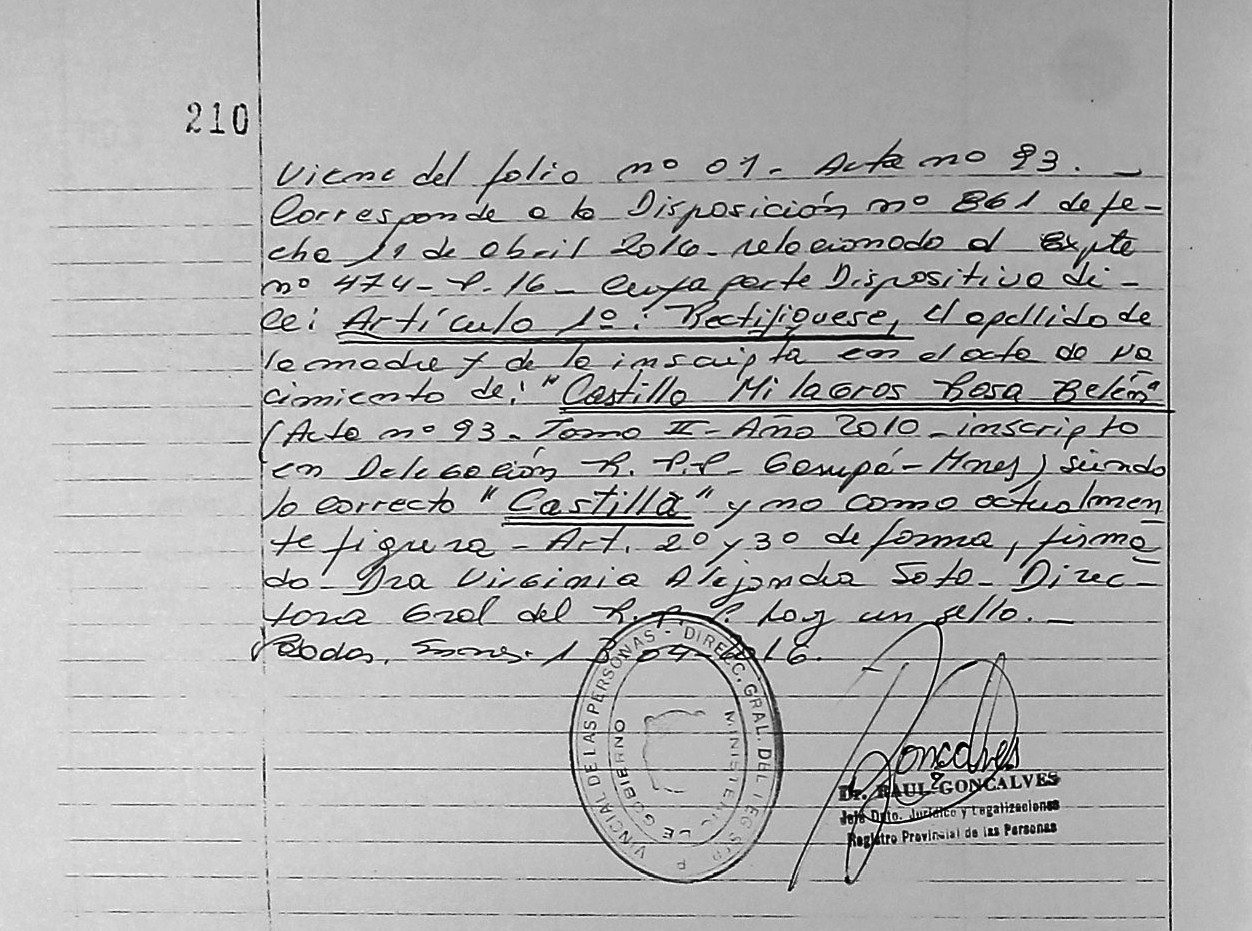 210
Viene del folio nº 01 - Acta nº 93. -
Corresponde a la Disposición nº 861 de fe-
cha 11 de Abril 2016 - relacionado al Expte
nº 474 - P. 16 - Cuya parte Dispositiva di-
ce: Artículo 1º: Rectifiquese, el apellido de
la madre y de la inscripta en el acta de na
cimiento de: "Castillo Milagros Rosa Belén"
(Acta nº 93 - Tomo II - Año 2010 - inscripto
en Delegación R. P.P. Garupá - Mnes) siendo
lo correcto "Castilla" y no como actualmen
te figura - Art. 2º y 3º de forma, firma
do Dra Virginia Alejandra Soto - Direc-
tora Gral del R. P. P. hay un sello. -
Pdas, 04-2016.
VINCIAL DE LAS PERSONAS - DIRECC. GRAL. DEL
MINISTERIO DE GOBIERNO
Goncalves
Dr. RAUL GONCALVES
Jefe Dpto. Jurídico y Legalizaciones
Registro Provincial de las Personas